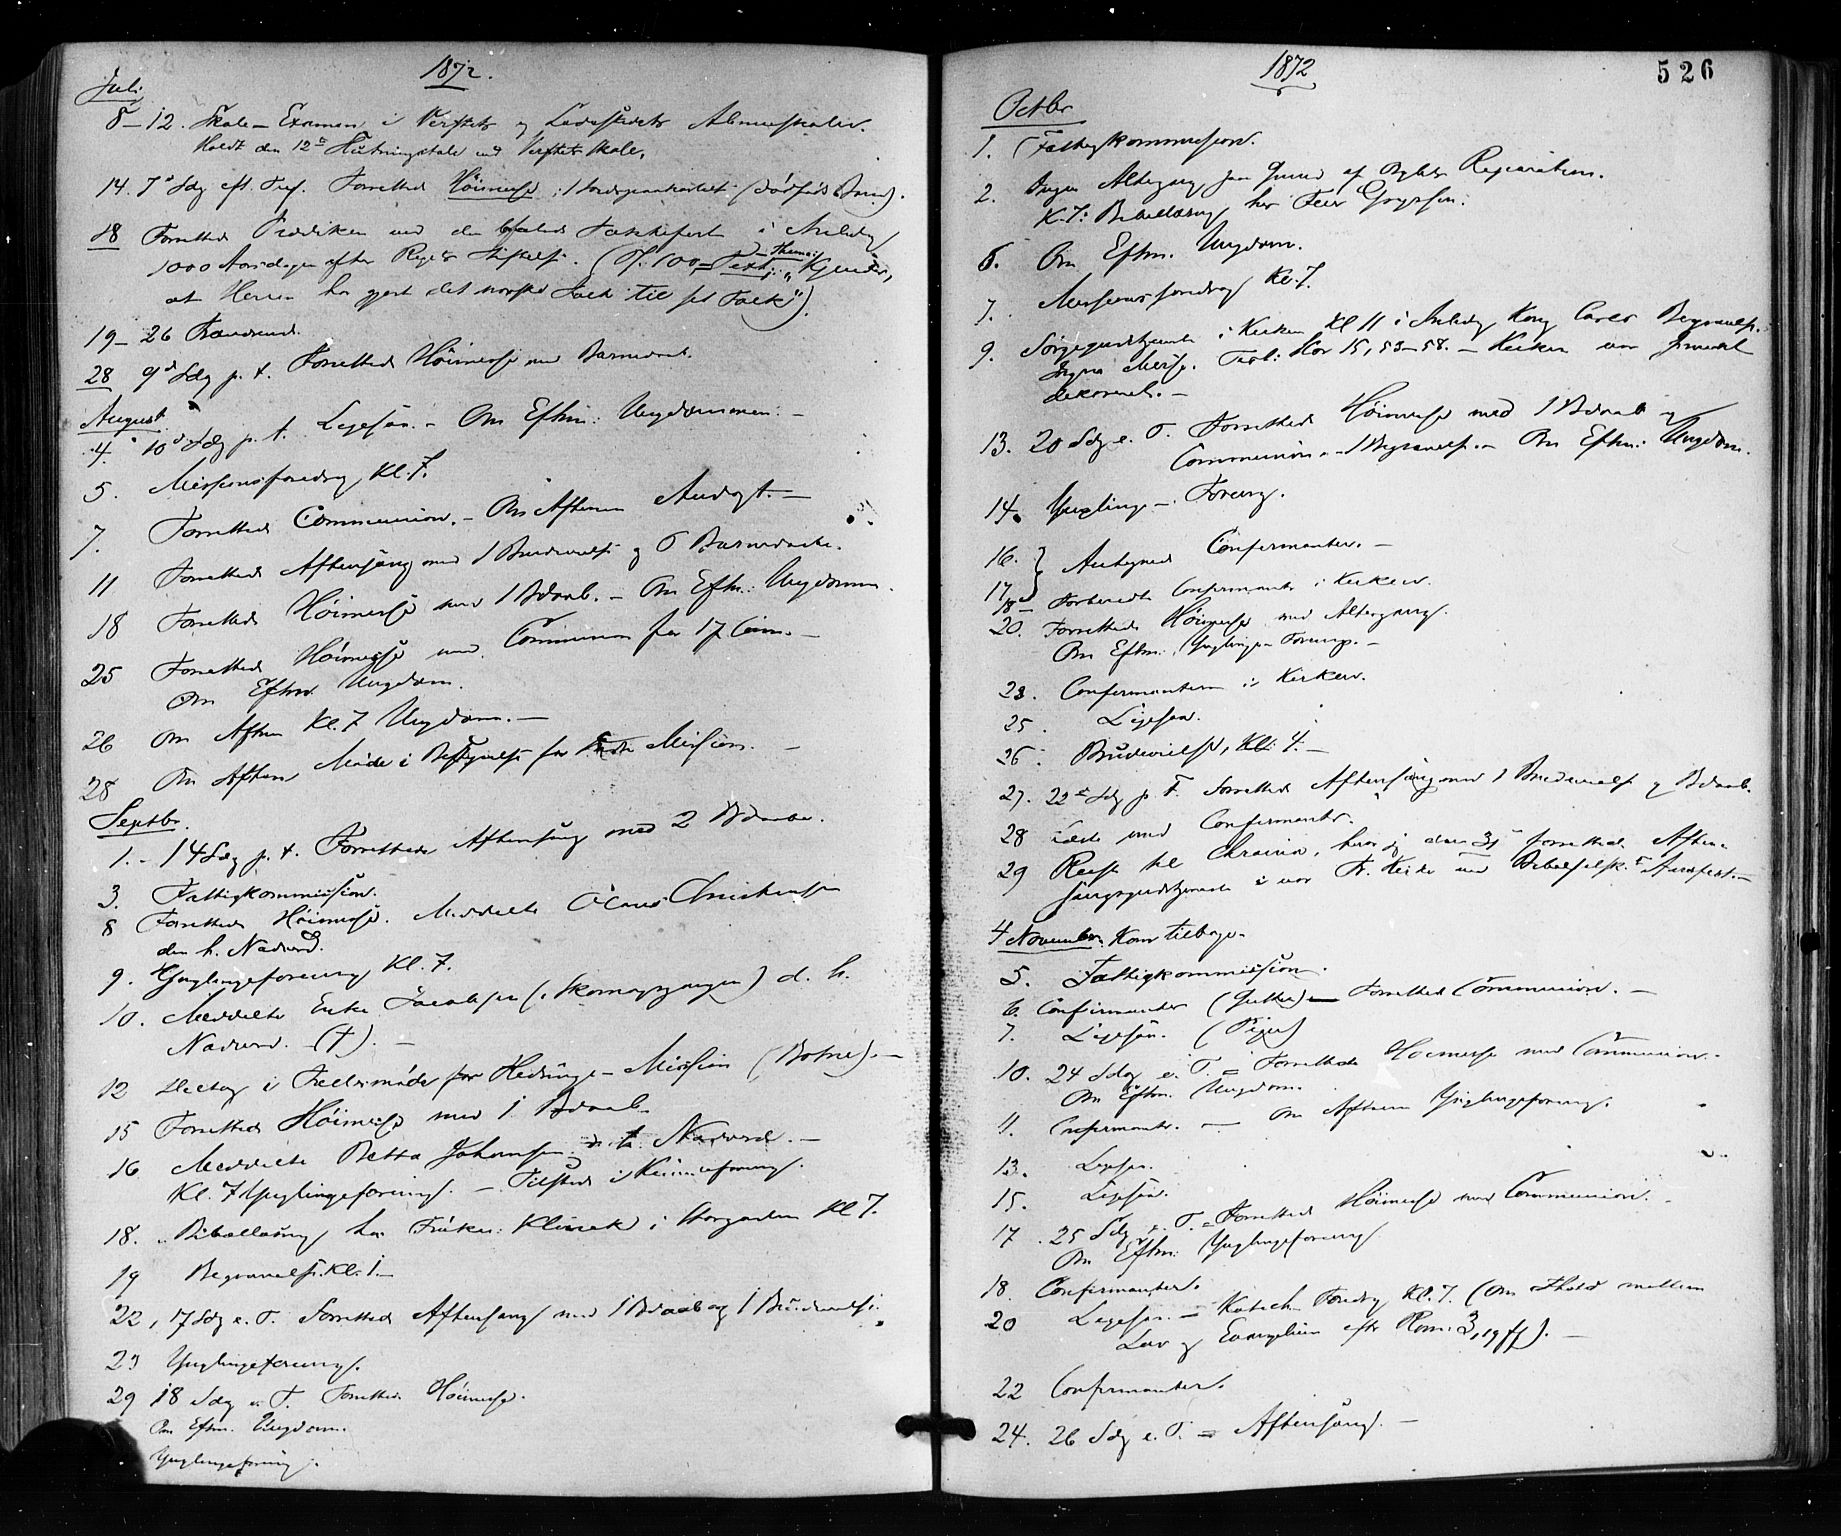 1872.
Juli
8–12. Skole-Examen i Verftets og Ladestedets Almueskoler.
Holdt den 12te Slutningstale ved Verftets Skole.
14. 7de Sdg eft. Tref. Forrettede Höimesse
18 Forrettede Prædiken ved den befalede Takkefest i Anledng
1000 Aarsdagen efter Rigets Stiftelse. (Ps. 100 – Text; – Thema: "Kjender,
at Herren har gjort det norske Folk til sit Folk").
19–26 Fraværende.
28 9de Sdg p. t. Forrettede Höimesse med Barnedaab.
August
4. 10de Sdg p. t. Ligefærd. – Om Efterm: Ungdommen. –
5. Missionsforedrag Kl. 7.
7. Forrettede Communion. – Om Aftenen Andagt. –
11 Forrettede Aftensang med 1 Brudevielse og 6 Barnedaab.
18 Forrettede Höimesse med 1 Bdaab. – Om Efterm: Ungdommen.
25 Forrettede Höimesse med Communion for 17 Com. –
Om Efterm Ungdom.
26 Om Aften Kl. 7 Ungdom. –
28 Om Aften Möde i Bestyrelse for Mission. –
Septbr.
1. – 14 Sdg p. t. Forrettede Aftensang med 2 Bdaab.
3. Fattigkommission.
8 Forrettede Höimesse. Meddelte Christensen
den h. Nadverd.
9. Ynglingeforening Kl. 7.
10. Meddelte Enke Jacobsen d. h.
Nadverd. (†). –
12 Deltog i Fællesmöde for Hednинge-Mission (Botne). –
15 Forrettede Höimesse med 1 Bdaab.
16 Meddelte Betta Johansen d. h. Nadverd. –
Kl. 7 Ynglingeforening. – Tilstede i Kvindeforening.
18. Bibellæsning hos Kl 7.
19 Begravelse Kl. 1. –
22, 17 Sdg e. T. Forrettede Aftensang med 1 Bdaab og 1 Brudevielse.
23 Ynglingeforening.
29 18 Sdg e. T. Forrettede Höimesse.
Om Efterm. Ungdom.
Ynglingeforening.
1872
526
Octbr
1. Fattigkommission.
2. Ingen Altergang paa Grund af Orglets Reparation.
Kl. 7: Bibellæsning hos
6. Om Efterm. Ungdom.
7. Missionsforedrag Kl. 7.
9. Sörgegudstjeneste i Kirken Kl 11 i Anledng Kong Carls Begravelse.
Text: 1 Kor 15, 53–58. – Kirken var
dekoreret. –
13. 20 Sdg e. T. Forrettede Höimesse med 1 Bdaab og
Communion. – 1 Begravelse. – Om Efterm: Ungdom.
14. Ynglinge-Forening.
16. } Antegnede Confirmanter. –
17
18 – Forberedte Confirmanter i Kirken.
20. Forrettede Höimesse med Altergang.
Om Efterm: Ynglinge-Forening. –
23. Confirmanterne i Kirken.
25. Ligefærd.
26. Brudevielse, Kl. 4. –
27. 22de Sdg p. T. Forrettede Aftensang med 1 Brudevielse og Bdaab.
28 med Confirmanter.
29 Reise til Chrania, hvor jeg den 31 forrettede Aften-
sangsgudstjeneste i vor Fr. Kirke ved Bibelselsk. Aarsfest. –
4 November. Kom tilbage.
5. Fattigkommission.
6. Confirmander (Gutter) – Forrettede Communion. –
7. Ligefærd. (Piger)
10. 24 Sdg e. T. = Forrettede Höimesse med Communion. –
Om Efterm. Ungdom.
11. Confirmanter. – Om Aftenen Ynglingeforening.
13. Ligefærd.
15. Ligefærd.
17. 25 Sdg e. T. = Forrettede Höimesse med Communion. –
Om Efterm: Ynglingeforening
18. Confirmanter.
20 Ligefærd. – Katech. Foredrag Kl. 7. (Om Forhold mellem
Lov og Evangelium efter Rom. 3, 19 ff). –
22 Confirmanter.
24. 26 Sdg e. T. = Aftensang. –